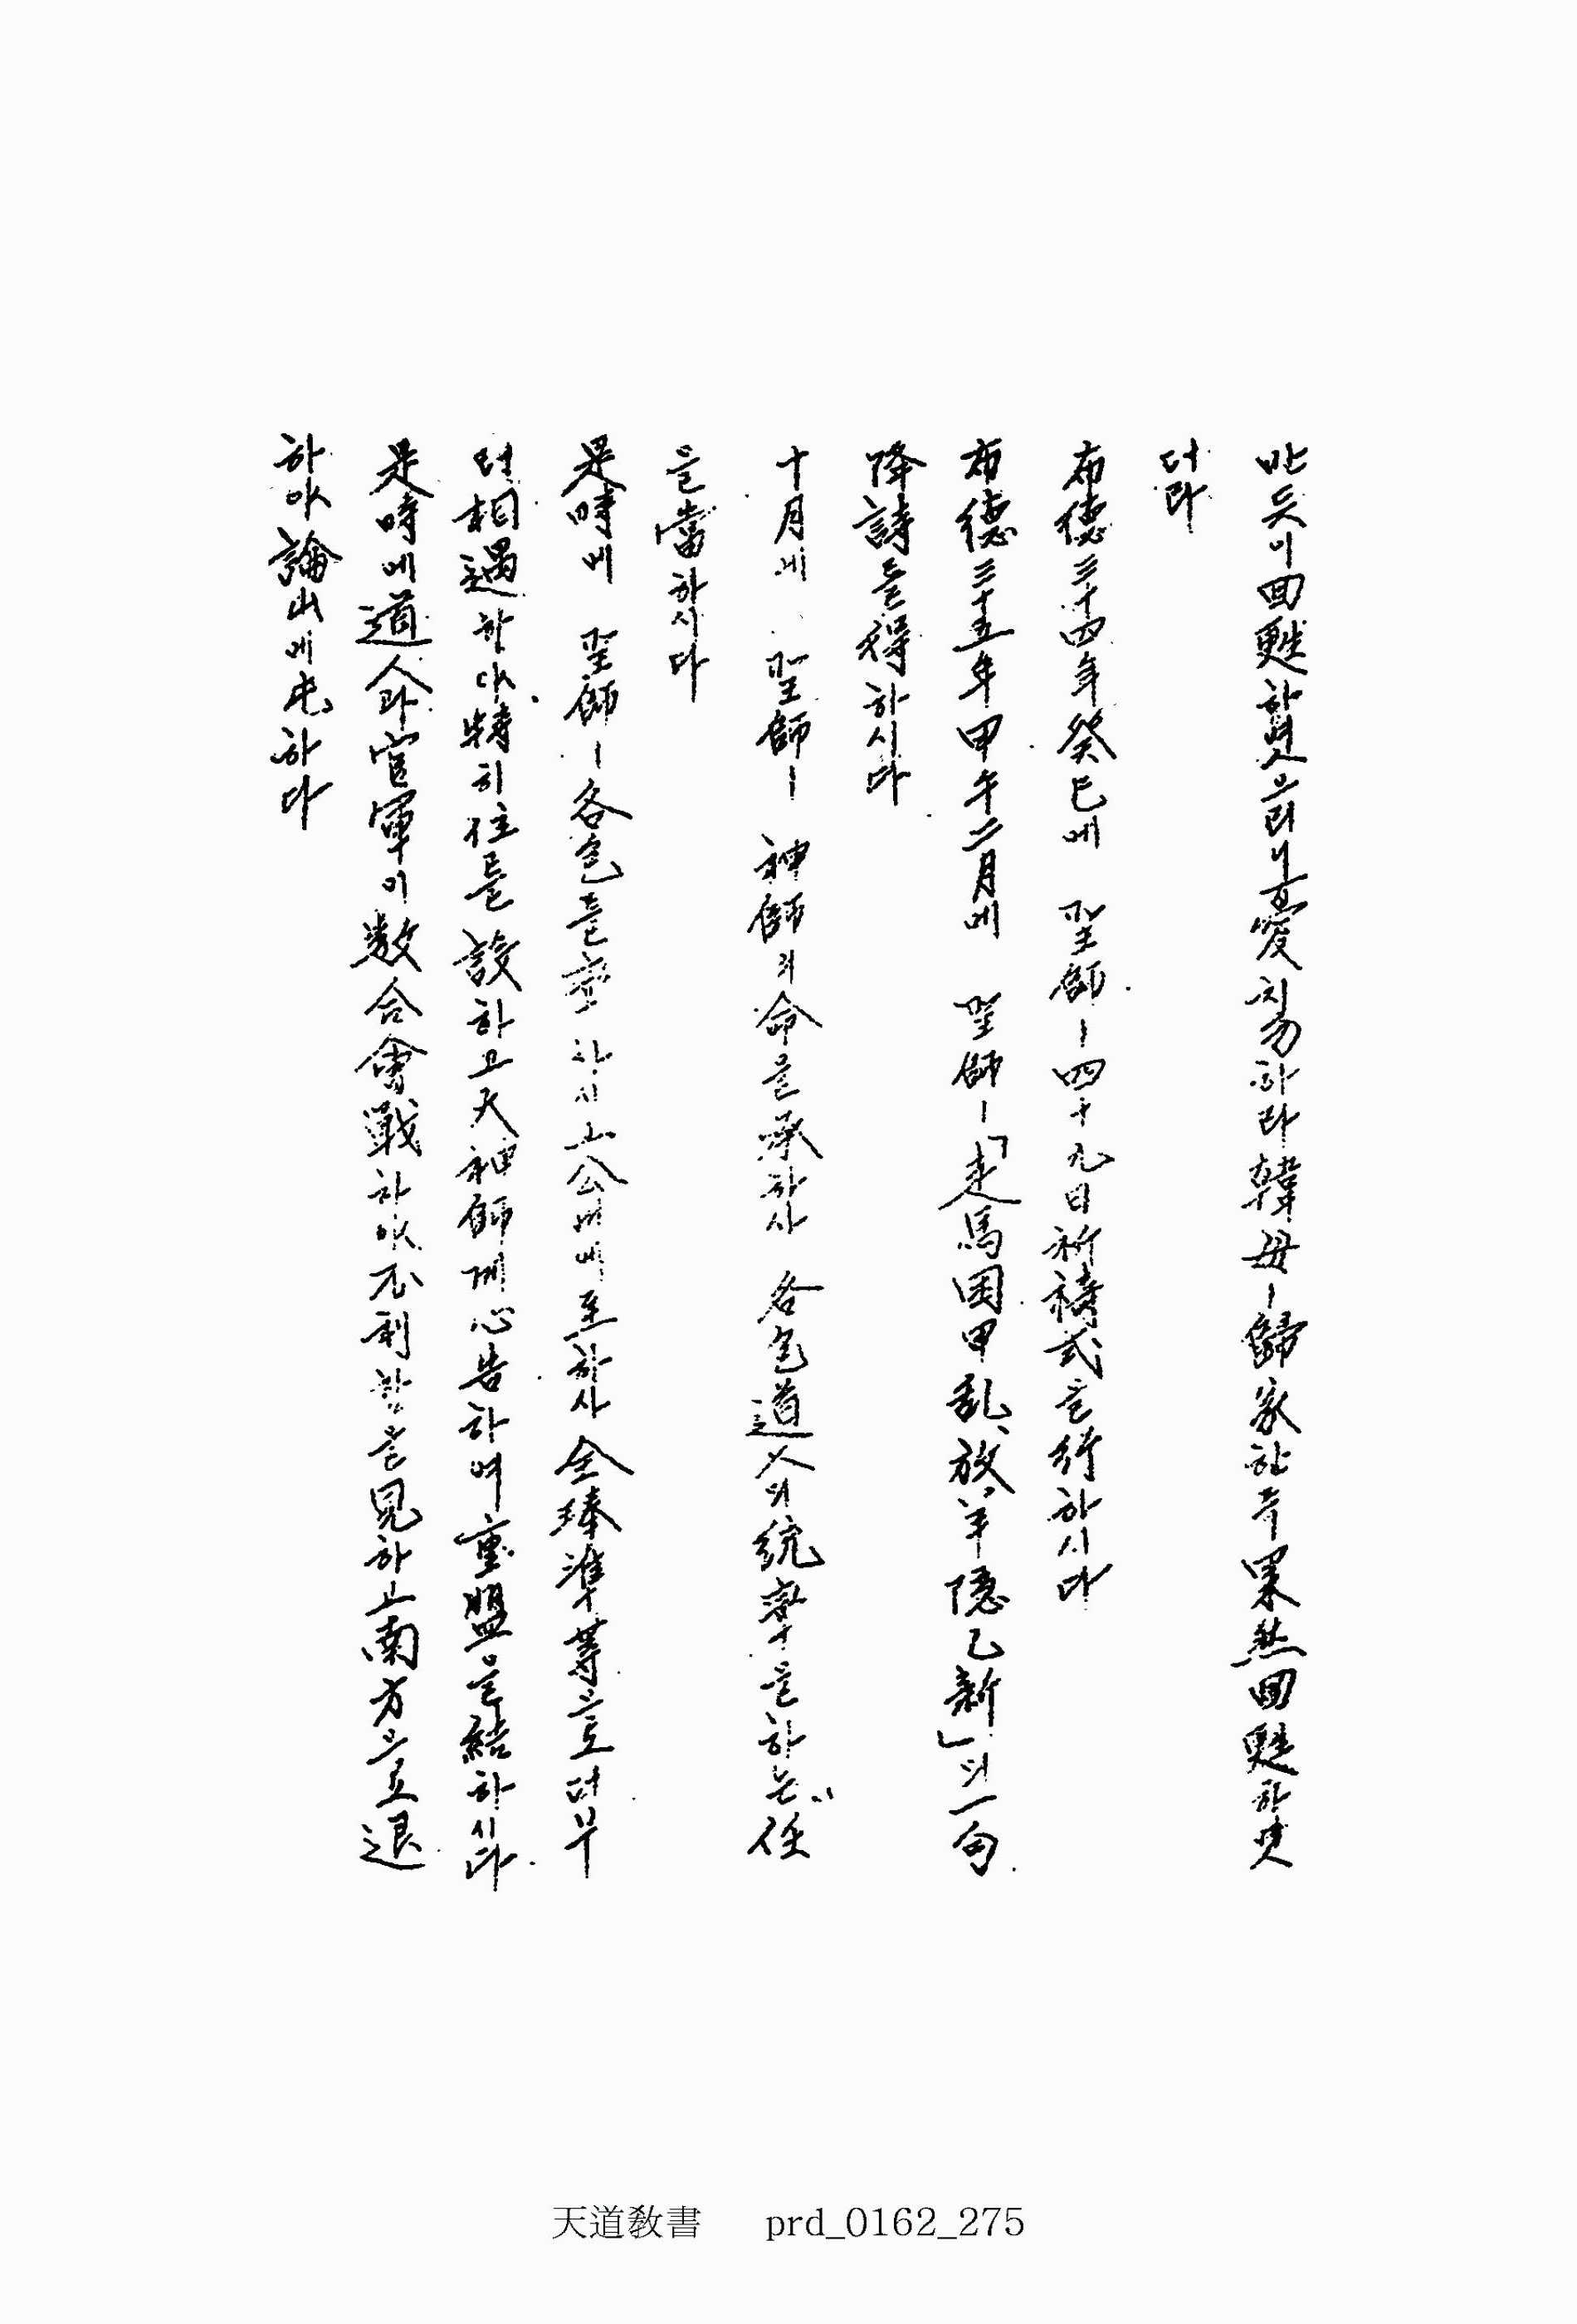 반듯이 回甦하엿으리니 憂치勿하라 韓母ㅣ歸家한즉 果然回甦하엿
더라
布德三十四年癸巳에 聖師ㅣ四十九日祈禱式을行하시다
布德三十五年甲午二月에 聖師ㅣ「走馬困甲乱、放羊隱乙新」의一句
降詩를得하시다
十月에 聖師ㅣ 神師의命을承하사 各包道人의統率을하는任
을當하시다
是時에 聖師ㅣ各包를率하시고公州에至하사 全琫準等으로더부
러相遇할새特히位를設하고天神師께心告하여重盟을結하시다
是時에道人과官軍이數合會戰하야不利함을見하고南方으로退
하야論山에屯하다
天道敎書 prd_0162_275